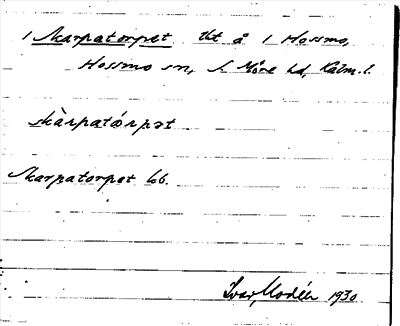 1 Skarpatorpet Ut å 1 Hossmo,
Hossmo sn, S. Möre hd, Kalm. l.
skàrpatórpət
Skarpatorpet bb.
Ivar Modéer 1930